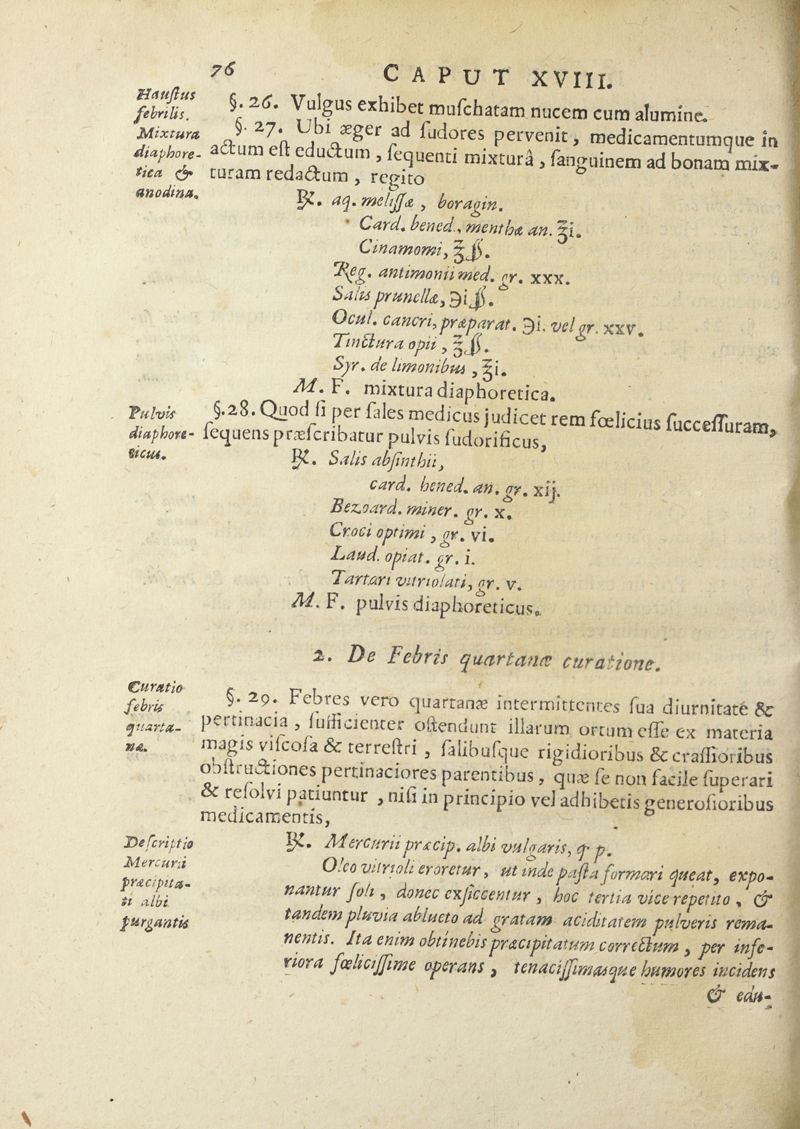 76 CAPUT XVIII.
Hauſtus
febrilis.
§. 26. Vulgus exhibet muſchatam nucem cum alumine.
Mixtura
diaphore-
tica &
anodina.
§. 27. Ubi æger ad ſudores pervenit, medicamentumque in
actum eſt eductum, ſequenti mixturâ, ſanguinem ad bonam mix-
turam redactum, regito
℞. aq. meliſſæ, boragin.
Card. bened., menthæ an. ℥i.
Cinamomi, ℥ß.
Reg. antimonii med. gr. xxx.
Salis prunellæ, ℈iß.
Ocul. cancri, præparat. ℈i. vel gr. xxv.
Tinctura opii, ʒß.
Syr. de limonibus, ℥i.
M. F. mixtura diaphoretica.
Pulvis
diaphore-
ticus.
§. 28. Quod ſi per ſales medicus judicet rem fœlicius ſucceſſuram,
ſequens præſcribatur pulvis ſudorificus,
℞. Salis abſinthii,
card. bened. an. gr. xij.
Bezoard. miner. gr. x.
Croci optimi, gr. vi.
Laud. opiat. gr. i.
Tartari vitriolati, gr. v.
M. F. pulvis diaphoreticus.
2. De Febris quartanæ curatione.
Curatio
febris
quarta-
næ.
§. 29. Febres vero quartanæ intermittentes ſua diurnitate &
pertinacia, ſufficienter oſtendunt illarum ortum eſſe ex materia
magis viſcoſa & terreſtri, ſalibuſque rigidioribus & craſſioribus
obſtructiones pertinaciores parentibus, quæ ſe non facile ſuperari
& reſolvi patiuntur, niſi in principio vel adhibetis generoſioribus
medicamentis,
Deſcriptio
Mercurii
præcipita-
ti albi
purgantis
℞. Mercurii præcip. albi vulgaris, q. p.
Oleo vitrioli eroretur, ut inde paſta formari queat, expo-
nantur ſoli, donec exſiccentur, hoc tertia vice repetito, &
tandem pluvia abluето ad gratam aciditatem pulveris rema-
nentis. Ita enim obtinebis præcipitatum correctum, per infe-
riora fœliciſſime operans, tenaciſſimasque humores incidens
& edu-